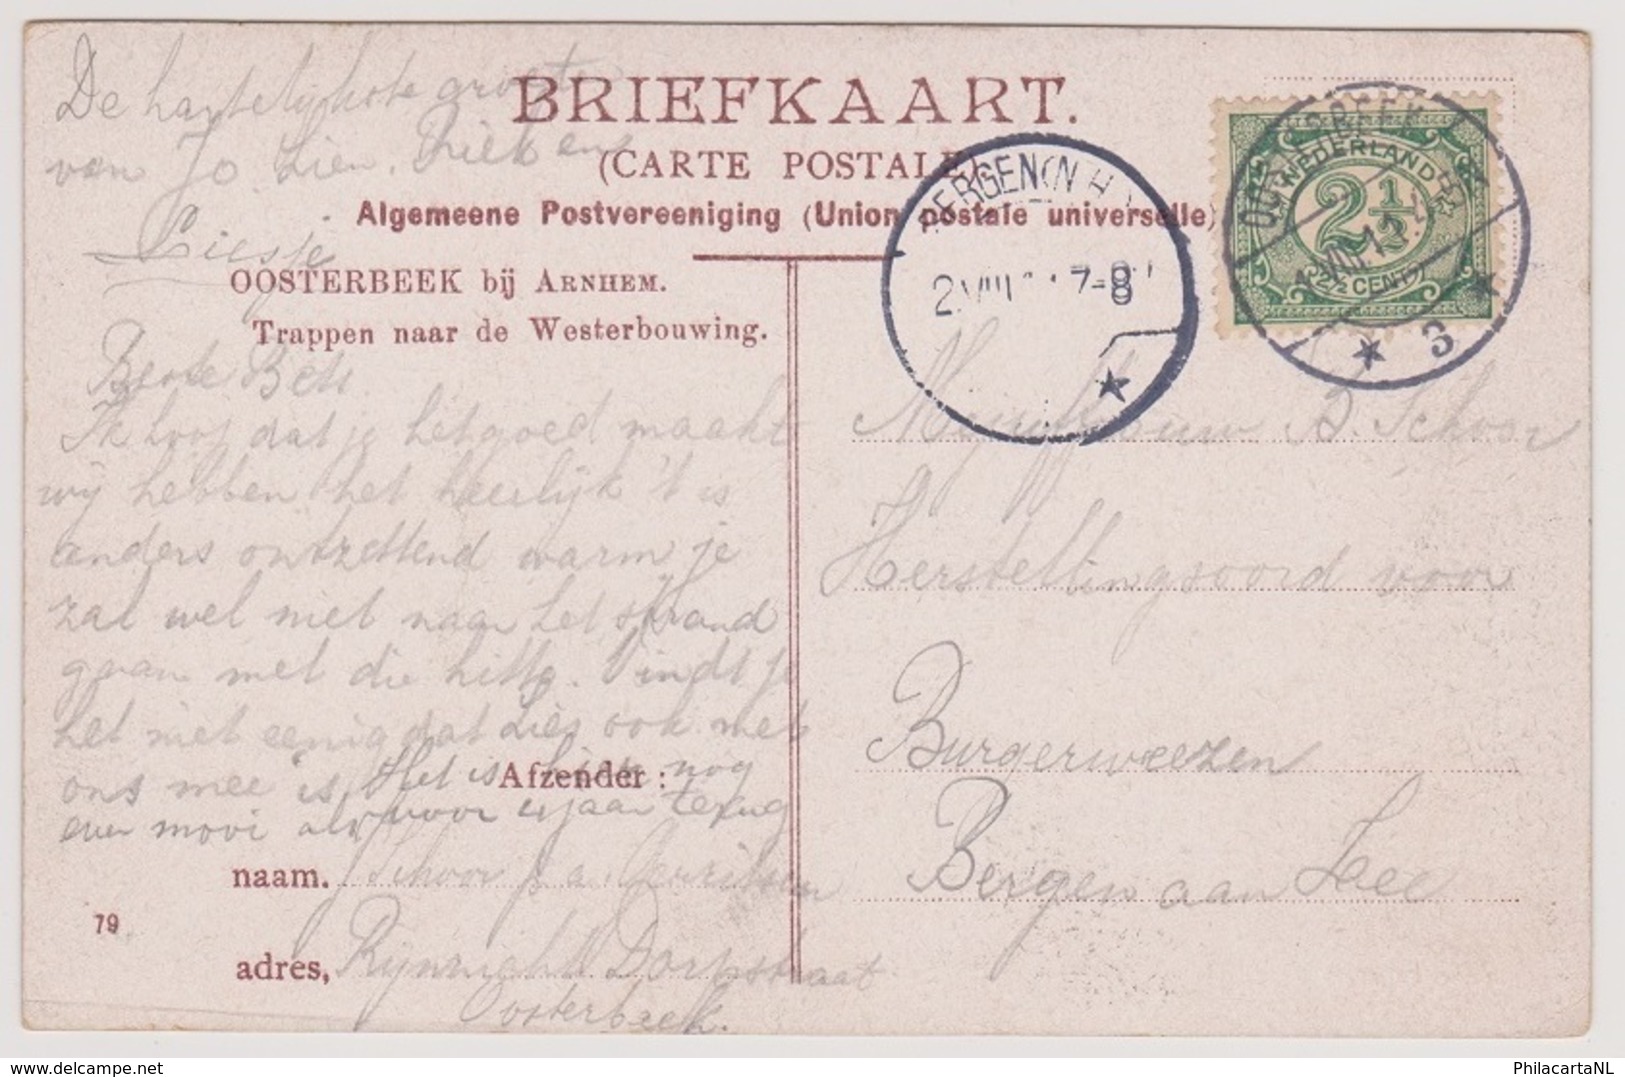 De hartelijkste groet
van Jo. Lien. Riek en
Liesje
BRIEFKAART.
(CARTE POSTALE)
Algemeene Postvereeniging (Union postale universelle)
OOSTERBEEK bij ARNHEM.
Trappen naar de Westerbouwing.
BERGEN (N.H.)
2.VIII 7-8
NEDERLAND
2½
2½ CENT
3
Beste Bets.
Ik hoop dat je het goed maakt
wij hebben het heerlijk 't is
anders ontzettend warm je
zal wel niet naar het strand
gaan met die hitte. Vindt je
het niet eenig dat Lies ook met
ons mee is. Het is hier nog
even mooi als voor jaar terug
Afzender:
naam. Schoor p. a. Gerritsen
adres, Dorpstraat
Oosterbeek.
79
Mejuffrouw B. Schoor
Herstellingsoord voor
Burgerweezen
Bergen aan Zee
PhilacartaNL
https://www.delcampe.net